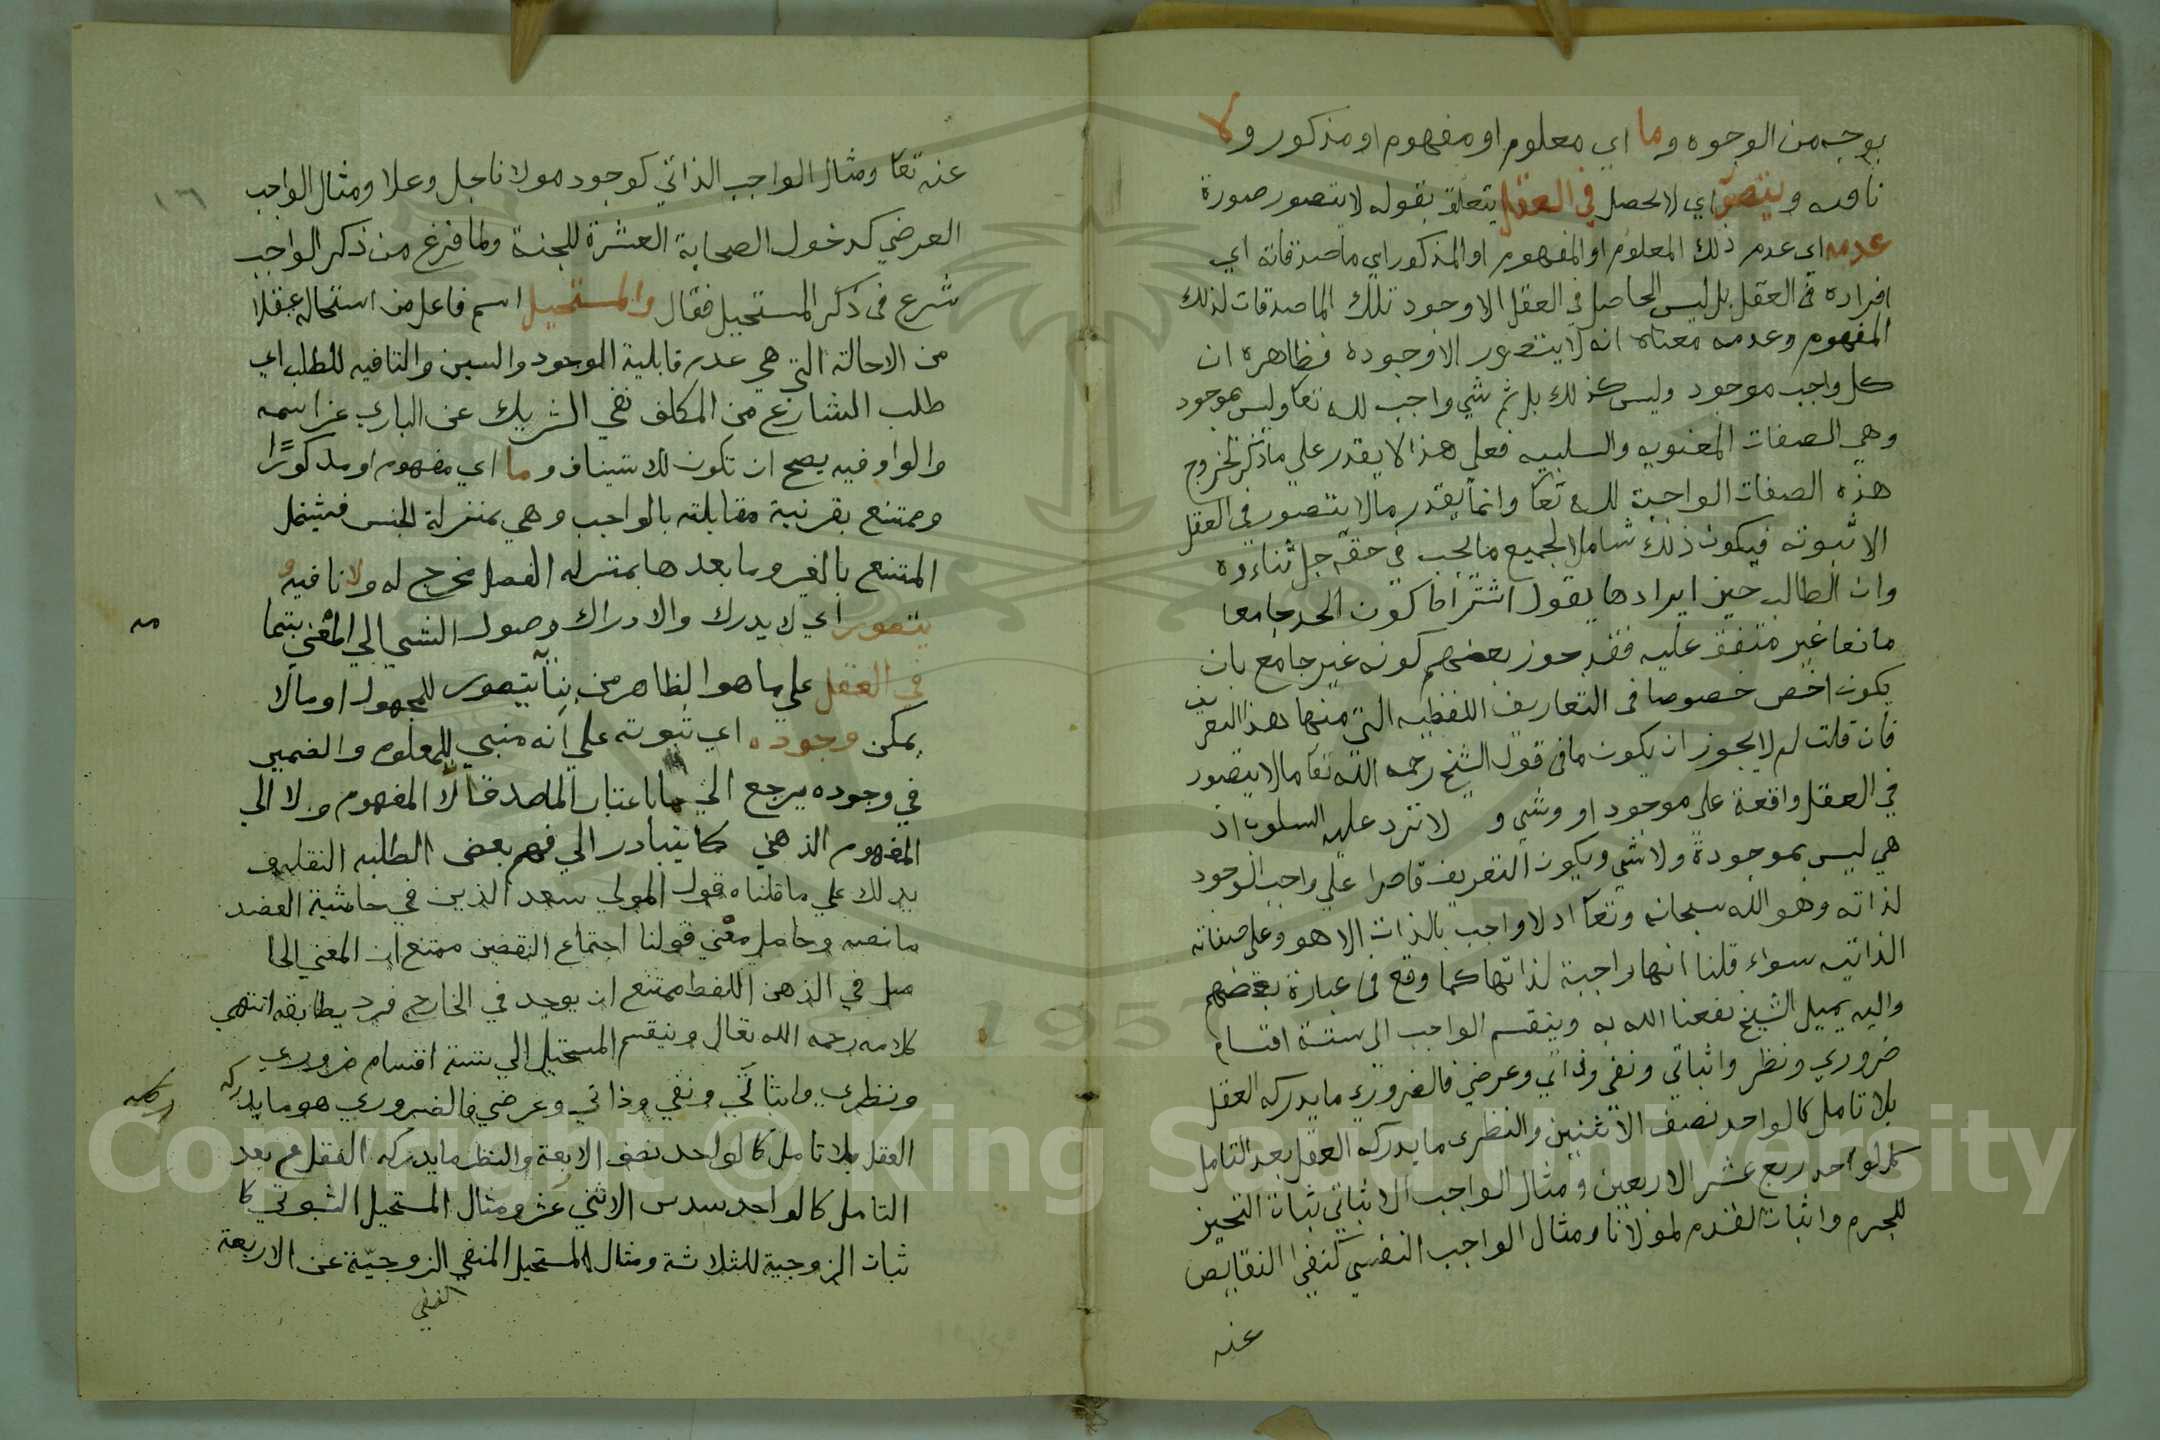 بوجه من الوجوه وما اي معلوم او مفهوم او مذكور ولا
نافيه ويتصور اي لا يحصل في العقل يتعلق بقوله لا يتصور صورة
عدمه اي عدم ذلك المعلوم او المفهوم او المذكور اي ماصدقاته اي
افراده في العقل بل ليس الحاصل في العقل الا وجود تلك الماصدقات لذلك
المفهوم وعدمه معناه انه لا يتصور الا وجوده فظاهره ان
كل واجب موجود وليس كذلك بل ثم شي واجب لله تعا وليس بموجود
وهي الصفات المعنويه والسلبيه فعلى هذا لا يقدر على ما ذكر لخروج
هذه الصفات الواجبة لله تعا وانما يقدر ما لا يتصور في العقل
الا ثبوته فيكون ذلك شاملا لجميع ما يجب في حقه جل ثناءوه
وان الطالب حين ايرادها يقول اشتراط كون الحد جامعا
مانعا غير متفق عليه فقد جوز بعضهم كونه غير جامع بان
يكون اخص خصوصا في التعاريف اللفظيه التي منها هذا التعريف
فان قلت لم لا يجوز ان يكون ما في قول الشيخ رحمه الله تعا ما لا يتصور
في العقل واقعة على موجود او وشي و لا ترد عليه السلوب اذ
هي ليس بموجودة ولا شي ويكون التعريف قاصرا على واجب الوجود
لذاته وهو الله سبحانه وتعا اد لا واجب بالذات الا هو وعلى صفاته
الذاتيه سواء قلنا انها واجبة لذاتها كما وقع في عبارة بعضهم
واليه يميل الشيخ نفعنا الله به وينقسم الواجب الى ستة اقسام
ضروري ونظر واثباتي ونفي وذاتي وعرضي فالضروري ما يدركه العقل
بلا تامل كالواحد نصف الاثنين والنظرى ما يدركه العقل بعد التامل
كالواحد ربع عشر الاربعين ومثال الواجب الاثباتي ثبات التحيز
للجرم واثبات القدم لمولانا ومثال الواجب النفسي كنفي النقايص
عنه
١٦
عنه تعا ومثال الواجب الذاتي كوجود مولانا جل وعلا ومثال الواجب
العرضي كدخول الصحابة العشرة للجنة ولما فرغ من ذكر الواجب
شرع في ذكر المستحيل فقال والمستحيل اسم فاعل من استحال عقلا
من الاحالة التي هي عدم قابلية الوجود والسين والتافيه للطلب اي
طلب الشارع من المكلف نفي الشريك عن الباري عز اسمه
والواو فيه يصح ان تكون للاستيناف وما اي مفهوم او مذكورًا
وممتنع بقرنية مقابلته بالواجب وهي بمنزلة الجنس فيشمل
الممتنع بالغير وما بعدها بمنزله الفصل مخرج له ولا نافيه و
يتصور اي لا يدرك والادراك وصول الشي الي المعني بتما مه
في العقل على ما هو الظاهر من بنآ يتصور للمجهول او ما لا
يمكن وجوده اي ثبوته علي انه مبني للمعلوم والضمير
في وجوده يرجع الي ما باعتبار الماصدق لا المفهوم ولا الي
المفهوم الذهني كما يتبادر الي فهم بعض الطلبه
يدلك علي ما قلناه قول المولي سعد الدين في حاشية العضد
ما نصه وحاصل معني قولنا اجتماع النقضين ممتنع ان المعني الحا
صل في الذهن اللفظ ممتنع ان يوجد في الخارج فرد يطابقه انتهي
كلامه رحمه الله تعال وينقسم المستحيل الي ستة اقسام ضروري
ونظري واثباتي ونفي وذاتي وعرضي فالضروري هو ما يدركه
العقل بلا تامل كالواحد نصف الاربعة والنظر ما يدركه العقل مع بعد
التامل كالواحد سدس الاثني عشر ومثال المستحيل الثبوتي كا
ثبات الزوجية للثلاثة ومثال المستحيل المنفي الزوجيّة عن الاربعة
Copyright © King Saud University
1957